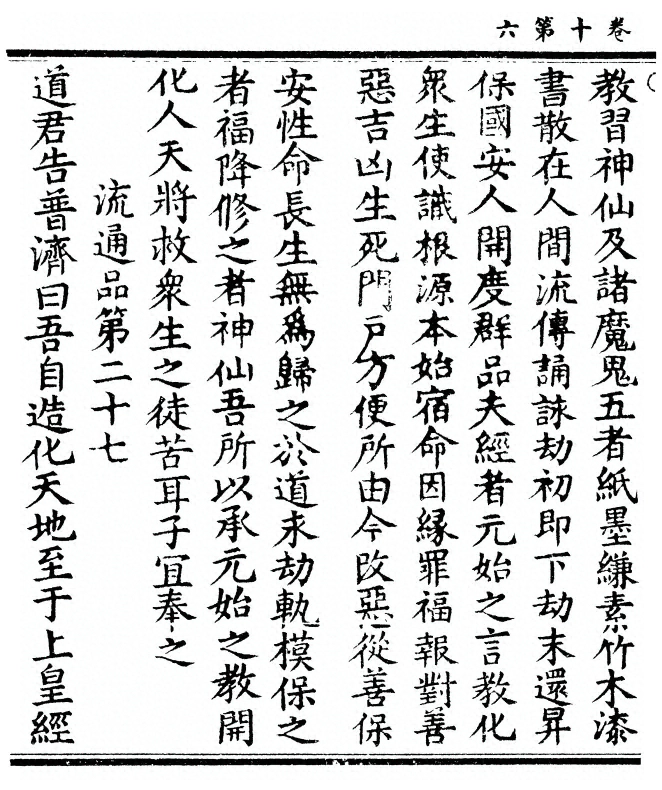 卷十第六
教習神仙及諸魔鬼五者紙墨縑素竹木漆
書散在人間流傳誦詠劫初即下劫末還昇
保國安人開度群品夫經者元始之言教化
衆生使識根源本始宿命因緣罪福報對善
惡吉凶生死門戶方便所由令改惡從善保
安性命長生無爲歸之於道末劫軌模保之
者福降修之者神仙吾所以承元始之教開
化人天將救衆生之徒苦耳子宜奉之
流通品第二十七
道君告普濟曰吾自造化天地至于上皇經